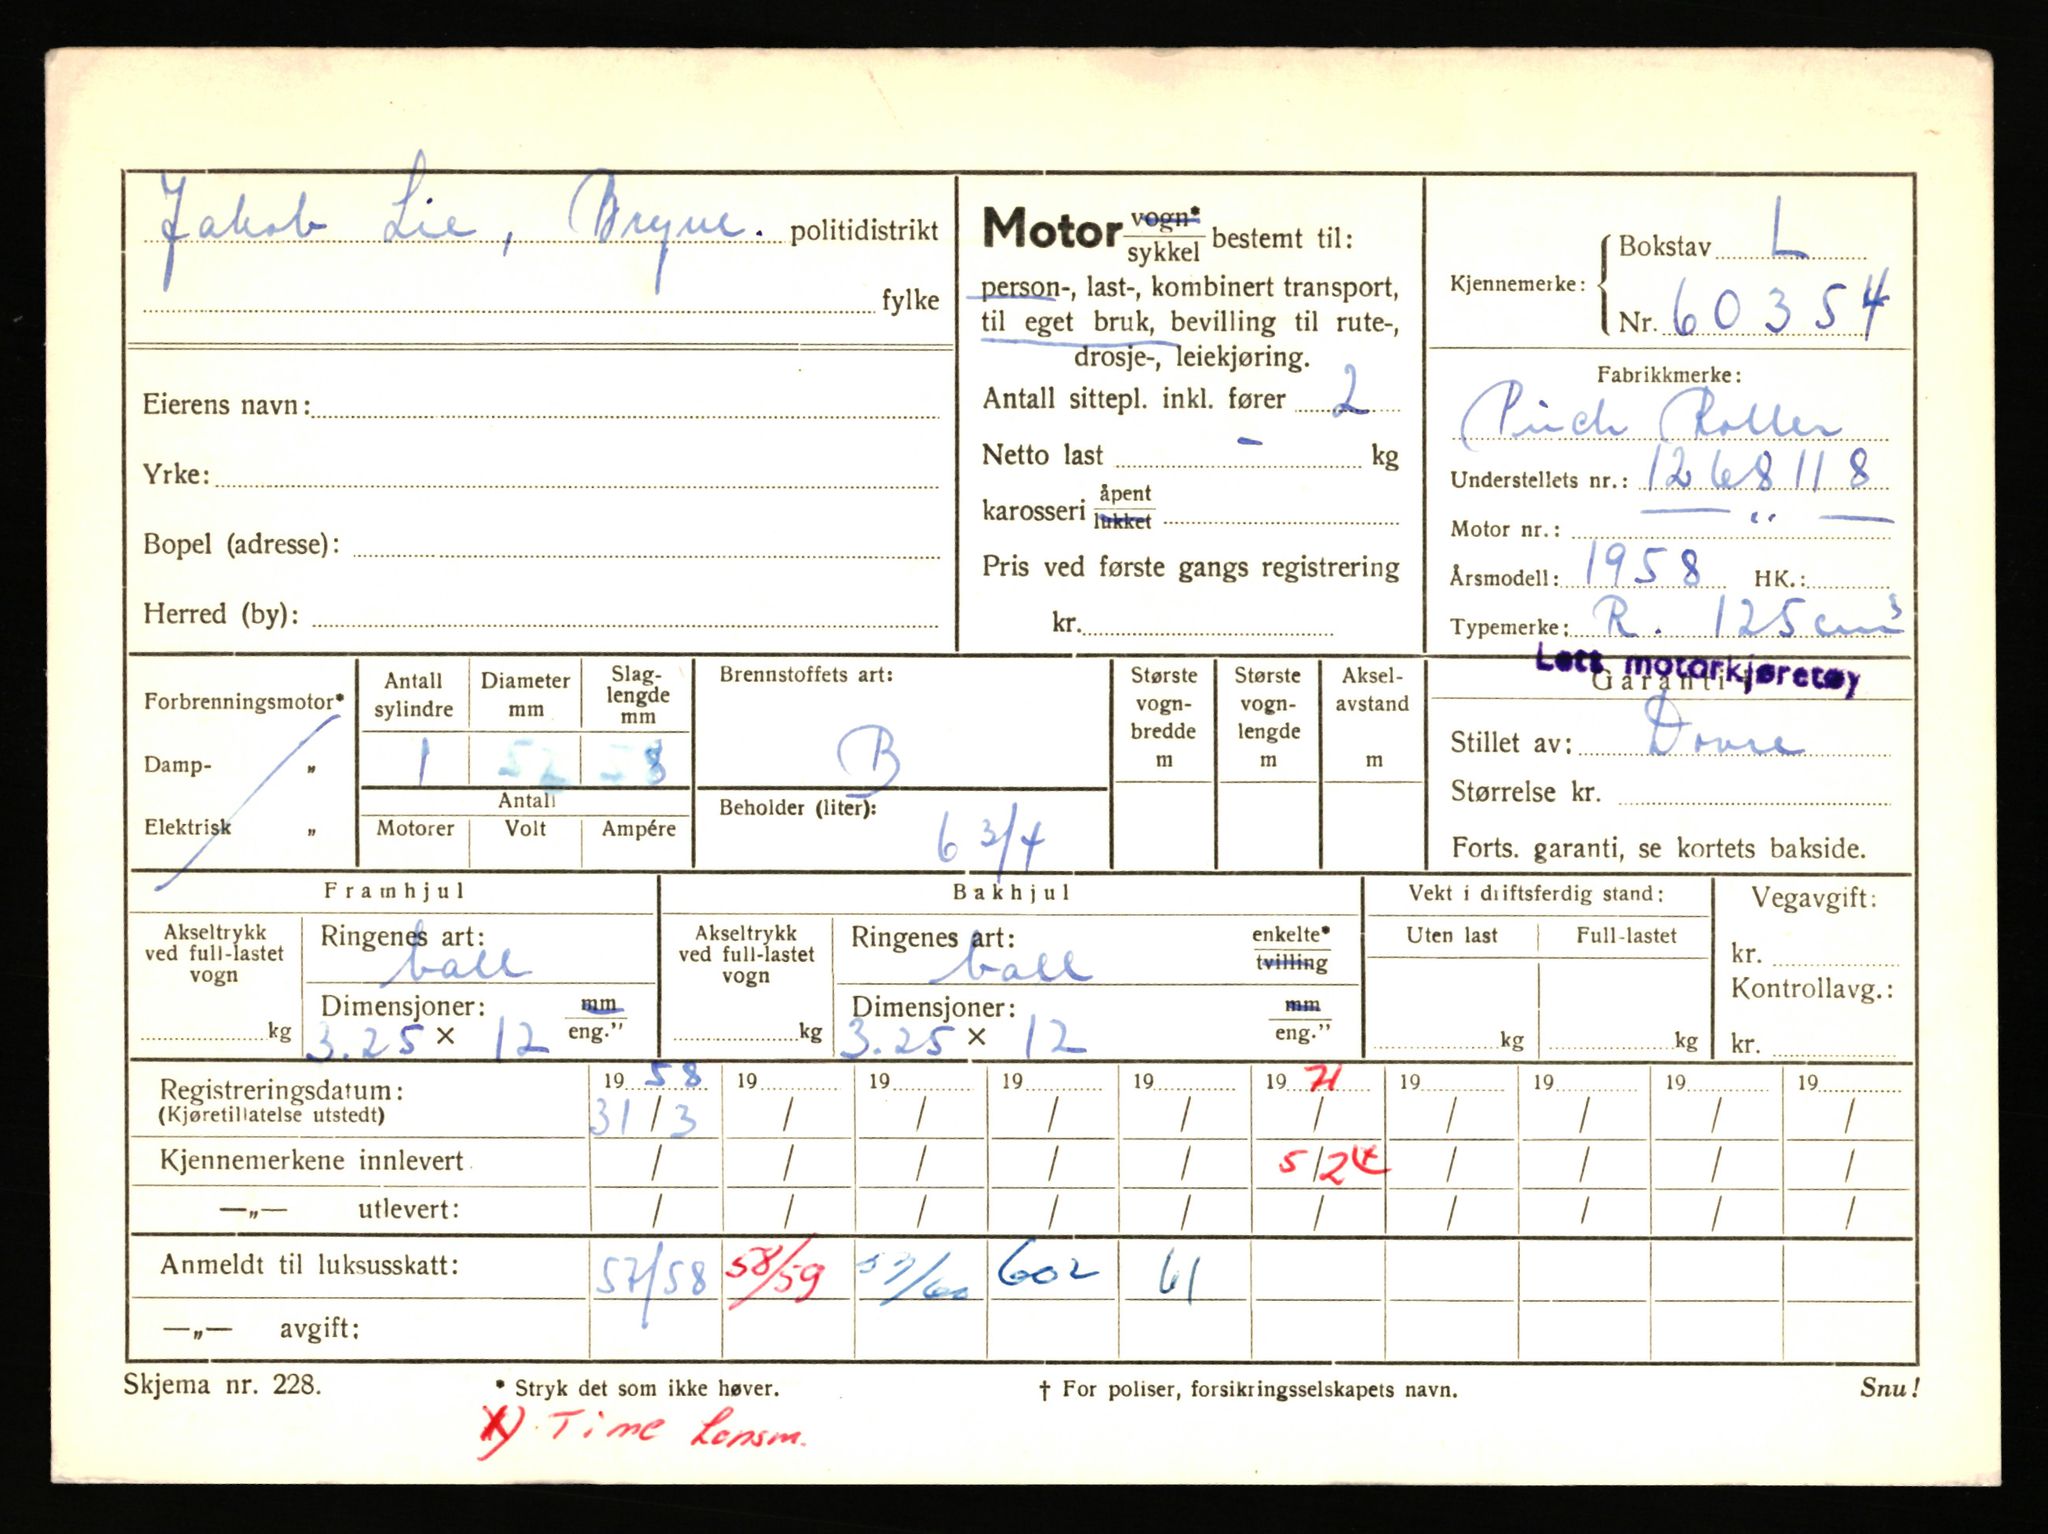 Jakob Lie, Bryne. politidistrikt
fylke
Eierens navn:
Yrke:
Bopel (adresse):
Herred (by):
Motor vogn* / sykkel bestemt til:
person-, last-, kombinert transport,
til eget bruk, bevilling til rute-,
drosje-, leiekjøring.
Antall sittepl. inkl. fører 2
Netto last - kg
karosseri åpent / lukket
Pris ved første gangs registrering
kr.
Kjennemerke: Bokstav L
Nr. 60354
Fabrikkmerke:
Puch Roller
Understellets nr.: 1268118
Motor nr.: — „ —
Årsmodell: 1958 HK.:
Typemerke: R. 125 cm³
Lett motorkjøretøy
Garanti †
Stillet av: Dovre
Størrelse kr.
Forts. garanti, se kortets bakside.
Forbrenningsmotor*
Damp- „
Elektrisk „
Antall sylindre
Diameter mm
Slag-lengde mm
1 52 58
Antall
Motorer Volt Ampére
Brennstoffets art:
B
Beholder (liter):
6 3/4
Største vogn-bredde m
Største vogn-lengde m
Aksel-avstand m
Framhjul
Akseltrykk ved full-lastet vogn
kg
Ringenes art:
ball
Dimensjoner: mm / eng.”
3.25 × 12
Bakhjul
Akseltrykk ved full-lastet vogn
kg
Ringenes art: enkelte* / tvilling
ball
Dimensjoner: mm / eng.”
3.25 × 12
Vekt i driftsferdig stand:
Uten last Full-lastet
kg kg
Vegavgift:
kr.
Kontrollavg.:
kr.
Registreringsdatum: 19 58 19 19 19 19 19 71 19 19 19 19
(Kjøretillatelse utstedt) 31 / 3 / / / / / / / / /
Kjennemerkene innlevert / / / / / 5/2 x / / / /
—„— utlevert: / / / / / / / / / /
Anmeldt til luksusskatt: 57/58 58/59 59/60 602 61
—„— avgift:
Skjema nr. 228. * Stryk det som ikke høver. † For poliser, forsikringsselskapets navn. Snu!
x) Time Lensm.